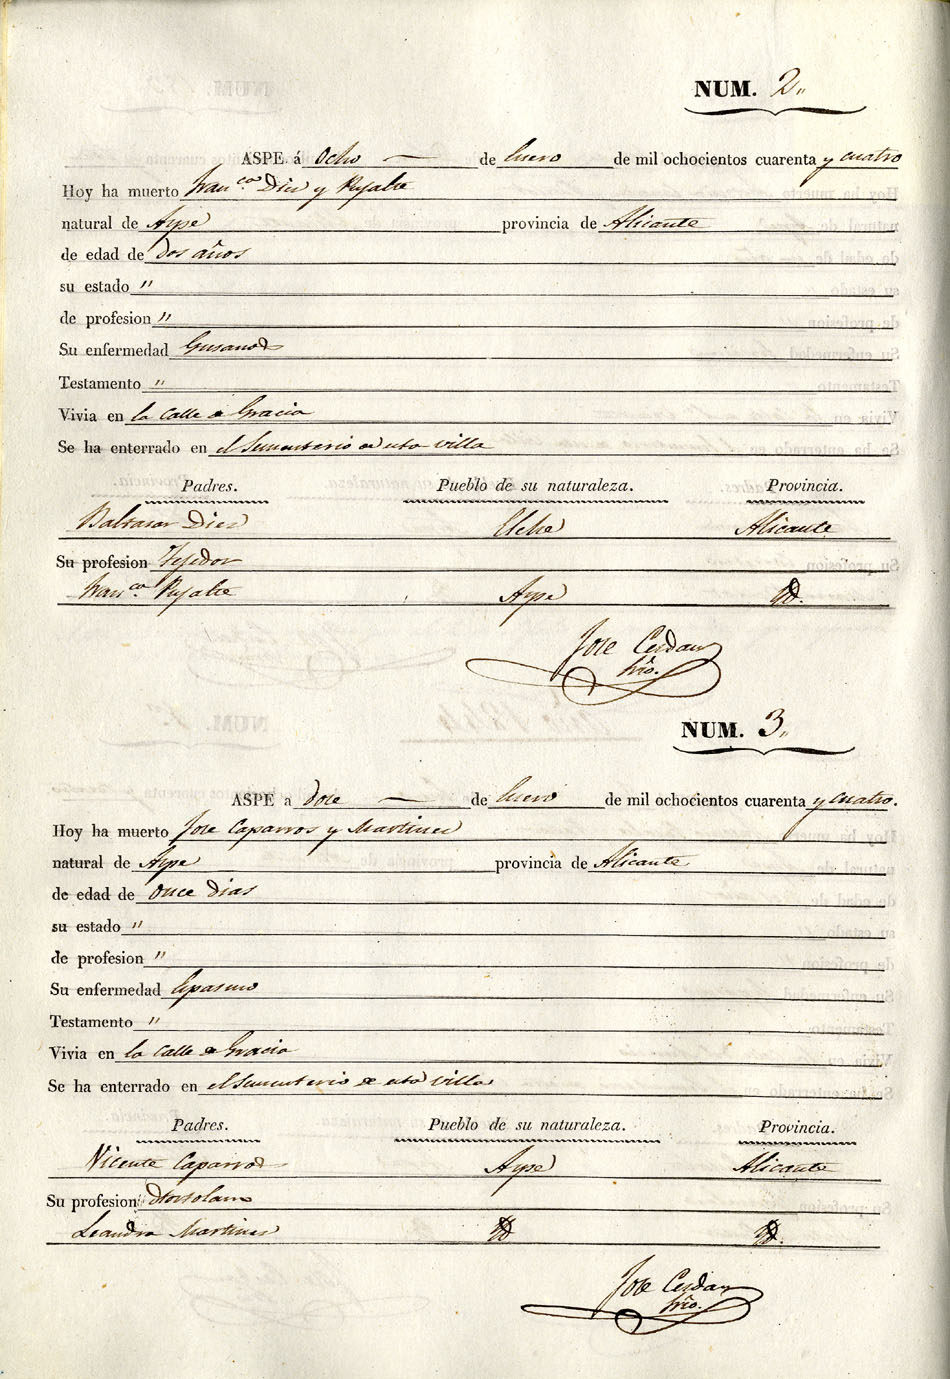 NUM. 2„
ASPE á Ocho — de Enero de mil ochocientos cuarenta y cuatro
Hoy ha muerto Fran.ca Diez y Pujalte
natural de Aspe provincia de Alicante
de edad de dos años
su estado "
de profesion "
Su enfermedad Gusanos
Testamento "
Vivia en la Calle de Gracia
Se ha enterrado en el Sementerio de esta villa
Padres. Pueblo de su naturaleza. Provincia.
Baltasar Diez Elche Alicante
Su profesion Tejedor
Fran.ca Pujalte Aspe Yd.
Jose Cerdan
Srio.
NUM. 3„
ASPE a doce — de Enero de mil ochocientos cuarenta y cuatro.
Hoy ha muerto Jose Caparros y Martinez
natural de Aspe provincia de Alicante
de edad de once dias
su estado "
de profesion "
Su enfermedad Espasmo
Testamento "
Vivia en la Calle de Gracia
Se ha enterrado en el Sementerio de esta villa
Padres. Pueblo de su naturaleza. Provincia.
Vicente Caparros Aspe Alicante
Su profesion Horsolano
Leandra Martinez Yd Yd.
Jose Cerdan
Srio.